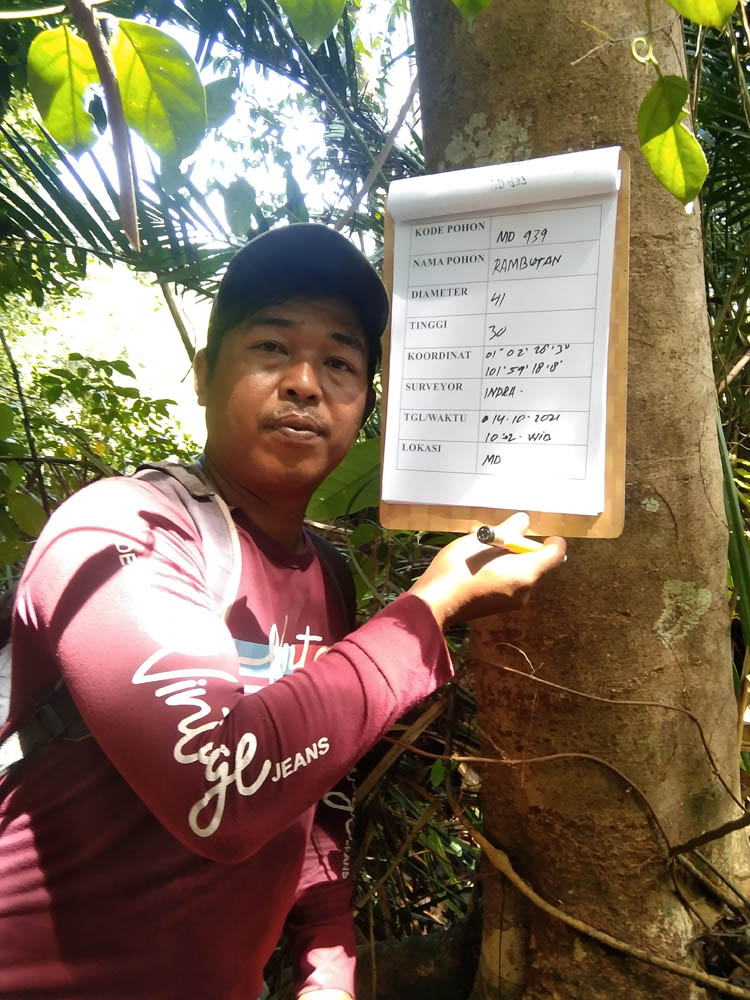 KODE POHON MD 939
NAMA POHON RAMBUTAN
DIAMETER 41
TINGGI 30
KOORDINAT 01° 02' 28'3"
101° 59' 18'8"
SURVEYOR INDRA.
TGL/WAKTU 14.10.2021
10:52. WIB
LOKASI MD
Vintage
JEANS